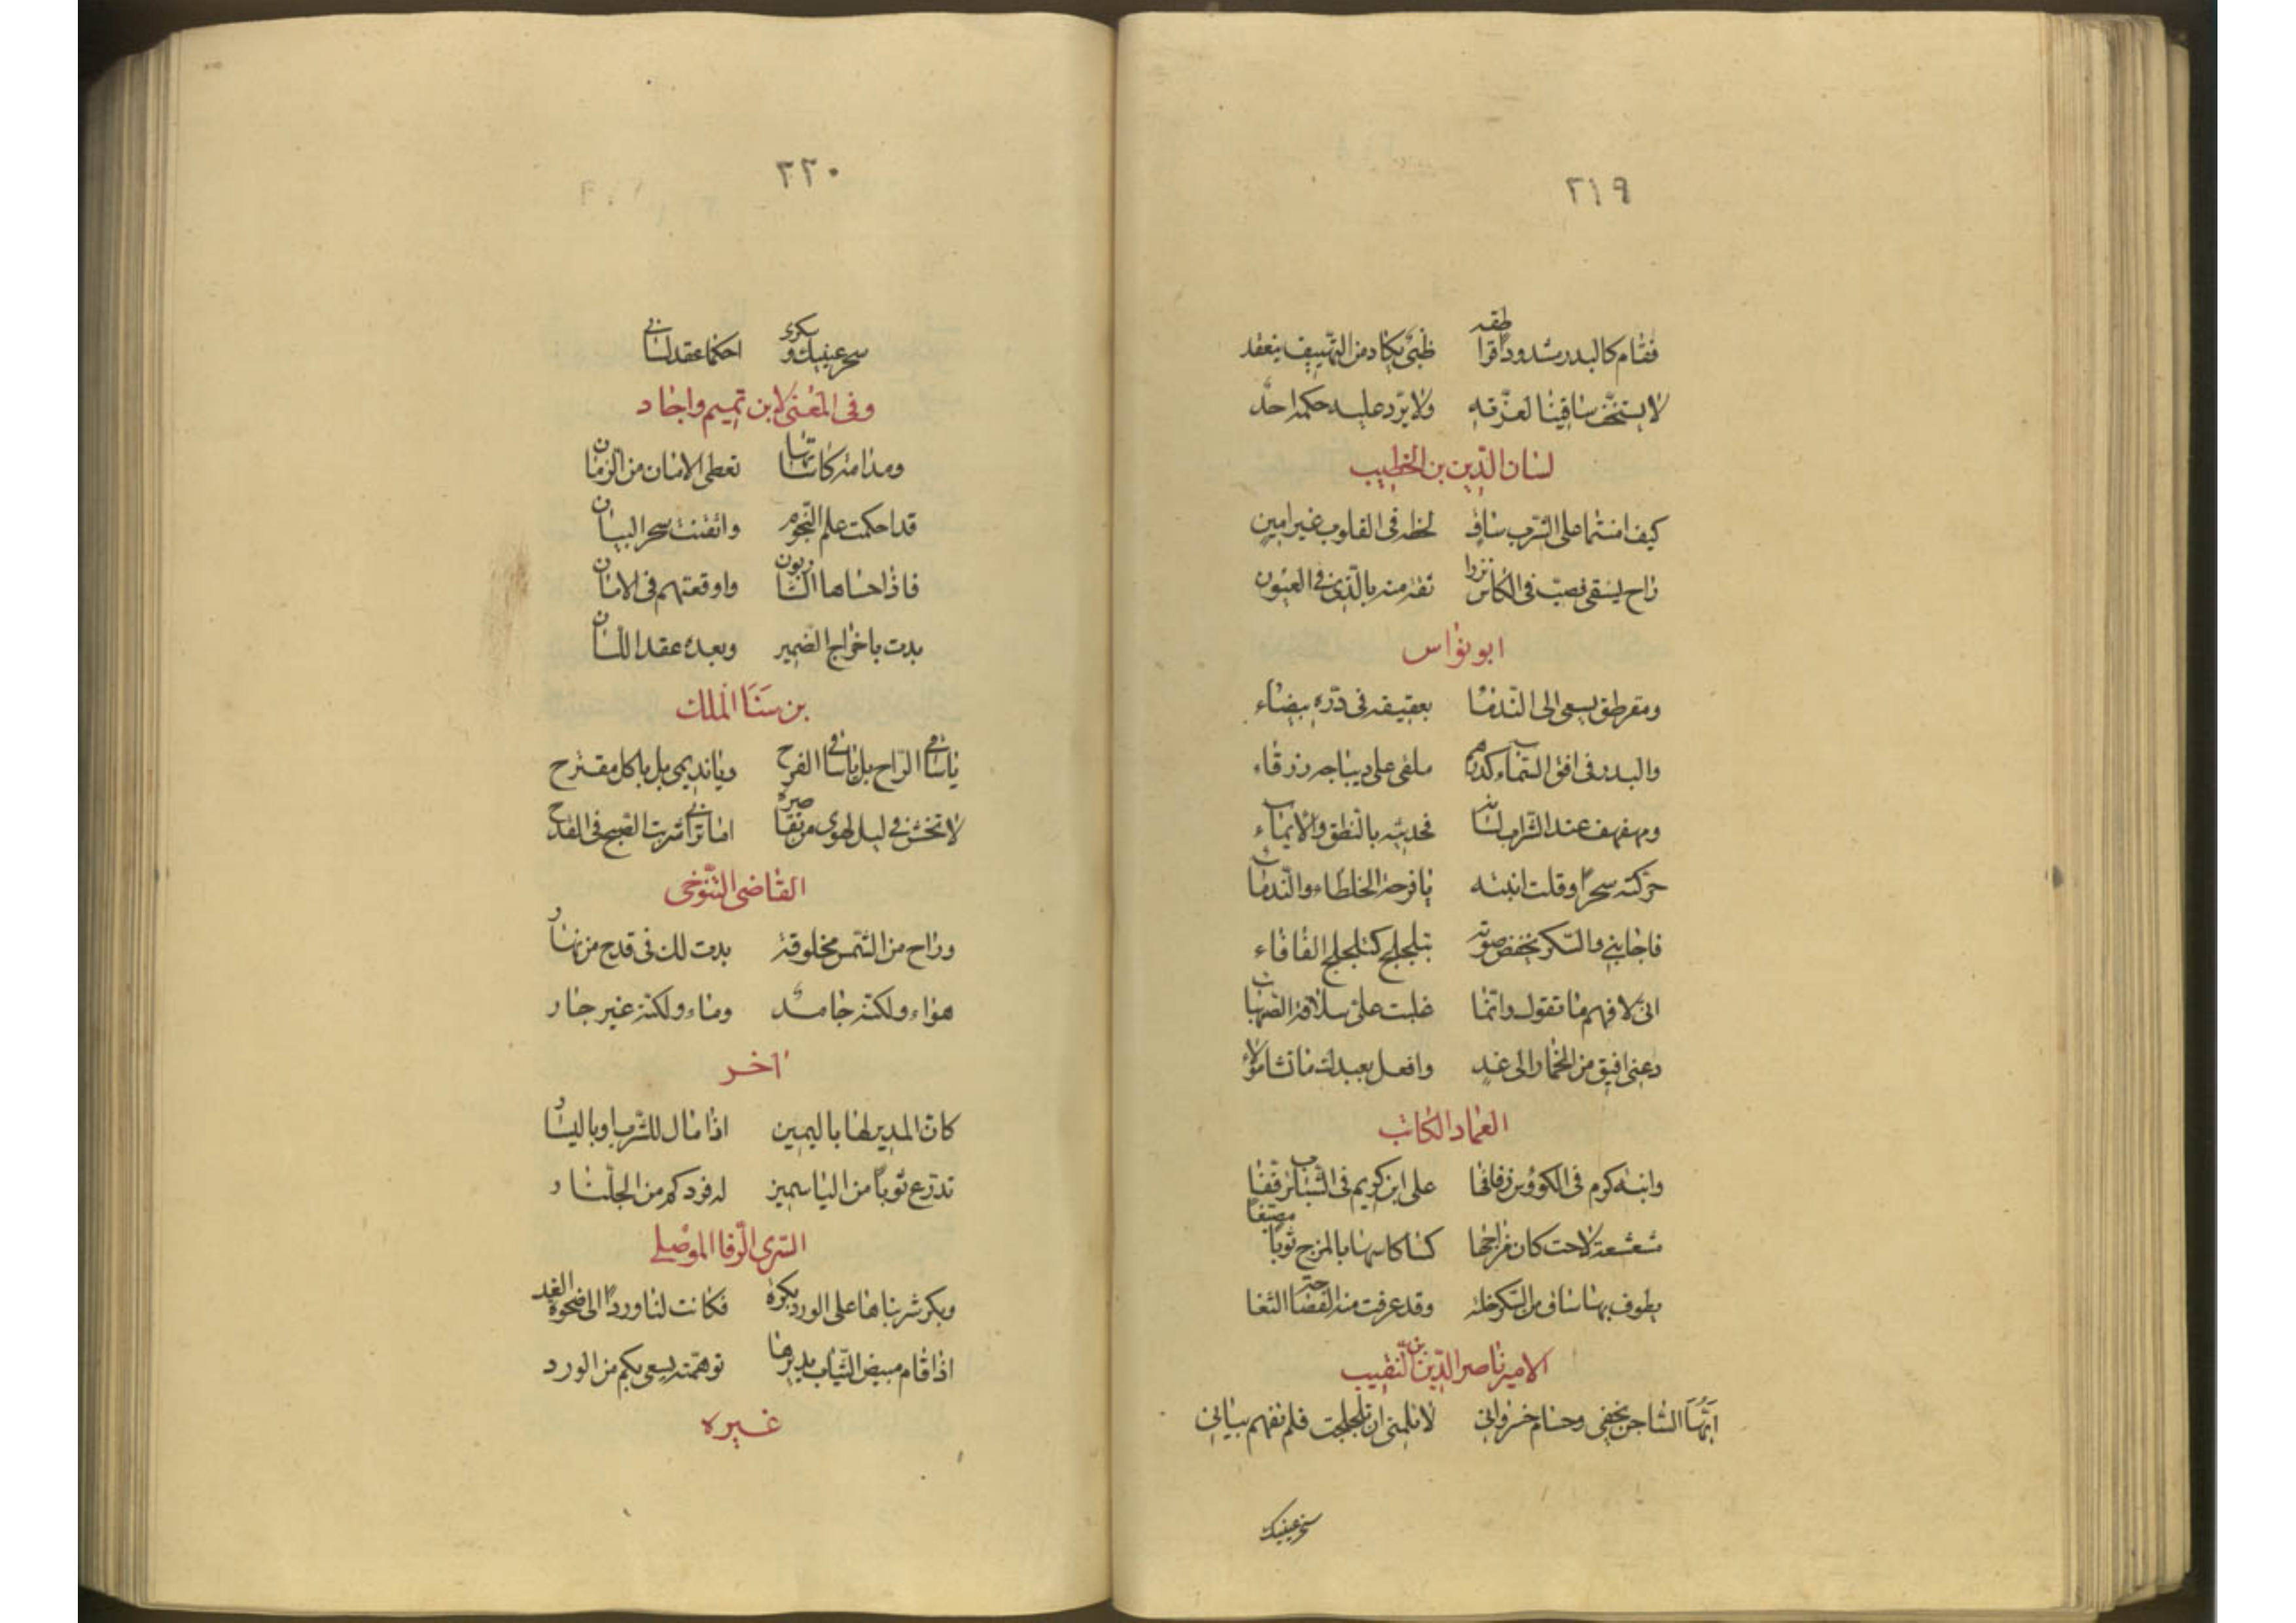 ٢١٩
فقام كالبدر مشدودا قراطقه ظبي يكاد من التهييف ينعقد
لا يستخف ساقينا لعزته ولا يرد عليه حكمه احد
لسان الدين بن الخطيب
كيف امنتما على الشرب ساق لحظه في القلوب غير امين
راح يسقي فصب في الكاس نزرا ثقة منه بالذي في العيون
ابو نواس
ومقرطق يسعى الى الندما بعقيقة في درة بيضاء
والبدر في افق السماء كدرهم ملقى على ديباجة زرقاء
ومهفهف عند الشراب لسانه فحديثه بالنطق والايماء
حركته سحرا وقلت انتبه يا فرحة الخلطاء والندماء
فاجابني والسكر يخفض صوته بتلجلج كتلجلج الفافاء
اني لافهم ما تقول وانما غلبت علي سلافة الصهباء
دعني افيق من الخمار الى غد وافعل بعبدك ما تشا مولاي
العماد الكاتب
وابنة كرم في الكؤوس زفافها على ابن كريم في الشباب ترققا
مشعشعة لاحت كان مزاجها كسا كاسها بالمزج ثوبا مصبغا
يطوف بها ساق من السكر خلته وقد عرفت منه الفصاحة الثغا
الامير ناصر الدين بن النقيب
ايها الساجن بخفي وحسام خسرواني لا تلمني ان تلجلجت فلم تفهم بياني
سحر عينيك
٢٢٠
سحر عينيك وسكري احكما عقد لساني
وفي المعنى لابن تميم واجاد
ومدامة كاساتها تعطي الامان من الزمان
قد احكمت علم النجوم واتقنت سحر البيان
فاذا حساها الشاربون واوقعتهم في الامان
بدت باخراج الضمير وبعده عقد اللسان
بن سنا الملك
يا ساقي الراح بل يا ساقي الفرح ويا نديمي بل يا كل مقترح
لا تخش في ليل لهوي من تقاصره اما تراني شربت الصبح في القدح
القاضي التنوخي
وراح من الشمس مخلوقة بدت لك في قدح من نهار
هواء ولكنه جامد وماء ولكنه غير جار
اخر
كان المدير لها باليمين اذا مال للشرب او باليسار
تدرع ثوبا من الياسمين له فرد كم من الجلنار
السري الرفا الموصلي
وبكر شربناها على الورد بكرة فكانت لنا وردا الى ضحوة الغد
اذا قام مبيض الثياب يديرها توهمته يسعى بكم من الورد
غيره